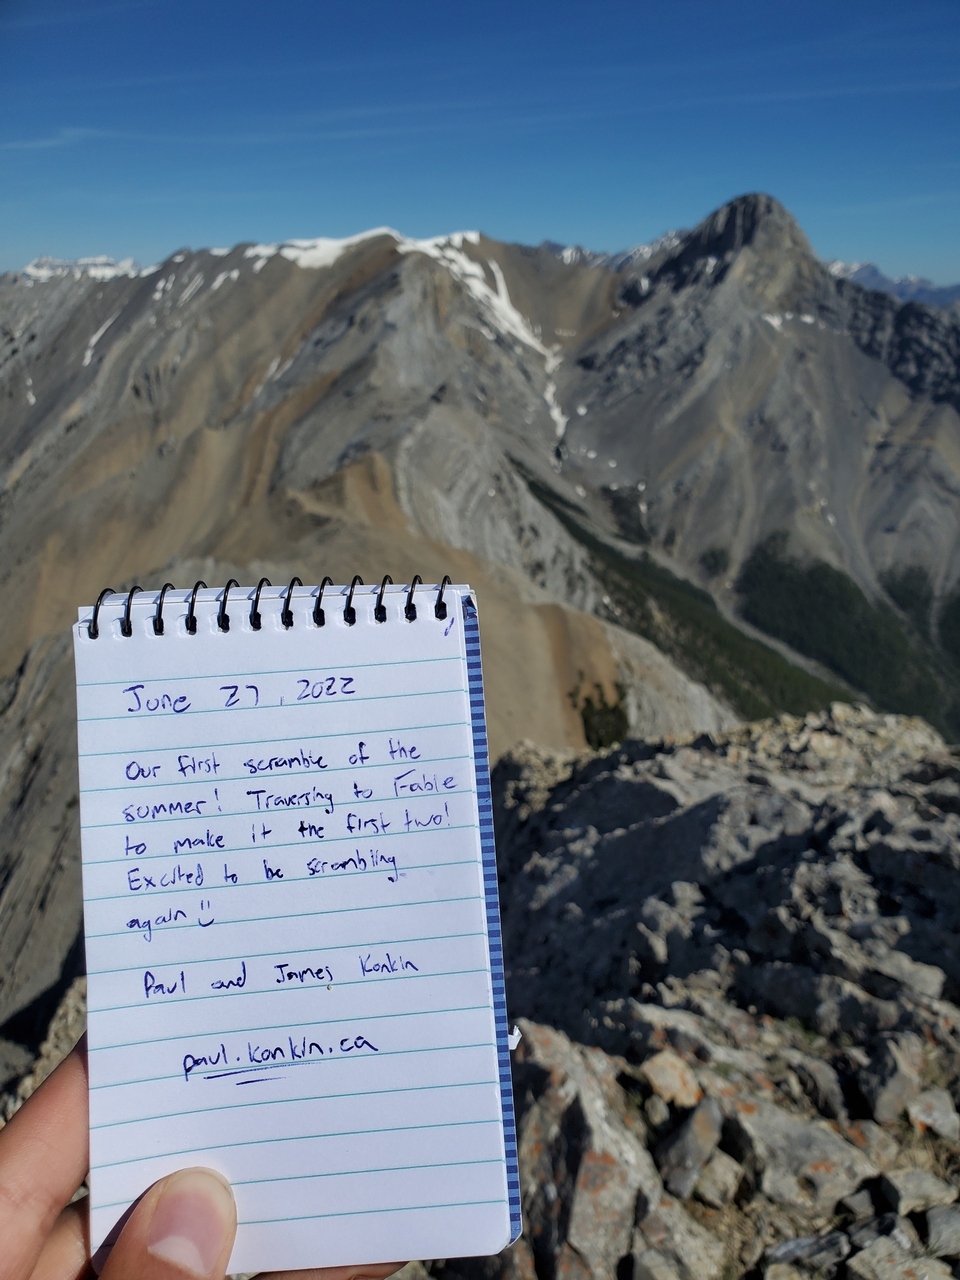 June 27, 2022
Our first scramble of the
summer! Traversing to Fable
to make it the first two!
Excited to be scrambling
again :)
Paul and James Konkin
paul.konkin.ca